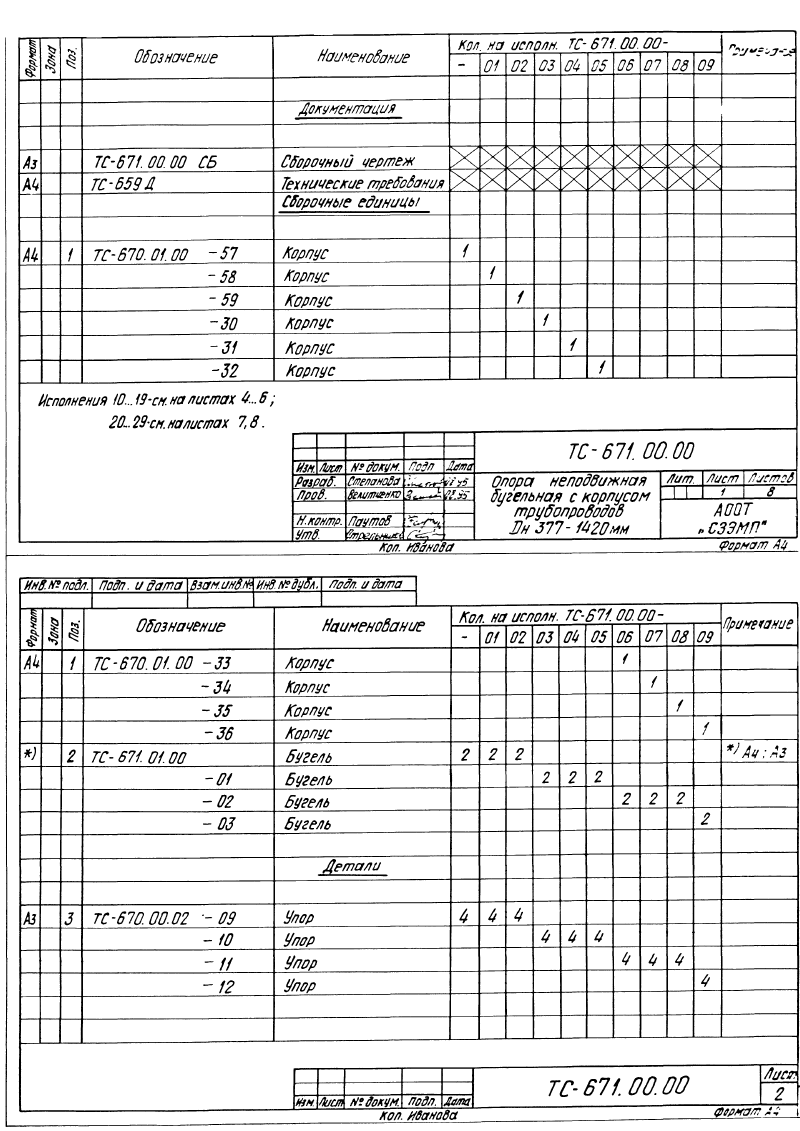 Формат Зона Поз. Обозначение Наименование Кол. на исполн. ТС-671.00.00- Примечание
- 01 02 03 04 05 06 07 08 09
Документация
А3 ТС-671.00.00 СБ Сборочный чертеж
А4 ТС-659 Д Технические требования
Сборочные единицы
А4 1 ТС-670.01.00 -57 Корпус 1
-58 Корпус 1
-59 Корпус 1
-30 Корпус 1
-31 Корпус 1
-32 Корпус 1
Исполнения 10...19-см. на листах 4...6;
20...29-см. на листах 7,8.
ТС-671.00.00
Изм. Лист № докум. Подп Дата
Разраб. Степанова
Пров. Велитченко
Н.контр. Паутов
Утв. Стрельник
Опора неподвижная
бугельная с корпусом
трубопроводов
Dн 377-1420мм
Лит. Лист Листов
1 8
АООТ
„СЗЭМП"
Кол. Иванова Формат А4
Инв.№ подл. Подп. и дата Взам.инв.№ Инв.№ дубл. Подп. и дата
Формат Зона Поз. Обозначение Наименование Кол. на исполн. ТС-671.00.00- Примечание
- 01 02 03 04 05 06 07 08 09
А4 1 ТС-670.01.00 -33 Корпус 1
-34 Корпус 1
-35 Корпус 1
-36 Корпус 1
*) 2 ТС-671.01.00 Бугель 2 2 2 *) А4; А3
-01 Бугель 2 2 2
-02 Бугель 2 2 2
-03 Бугель 2
Детали
А3 3 ТС-670.00.02 -09 Упор 4 4 4
-10 Упор 4 4 4
-11 Упор 4 4 4
-12 Упор 4
ТС-671.00.00
Лист
2
Изм. Лист № докум. Подп. Дата
Кол. Иванова Формат А4